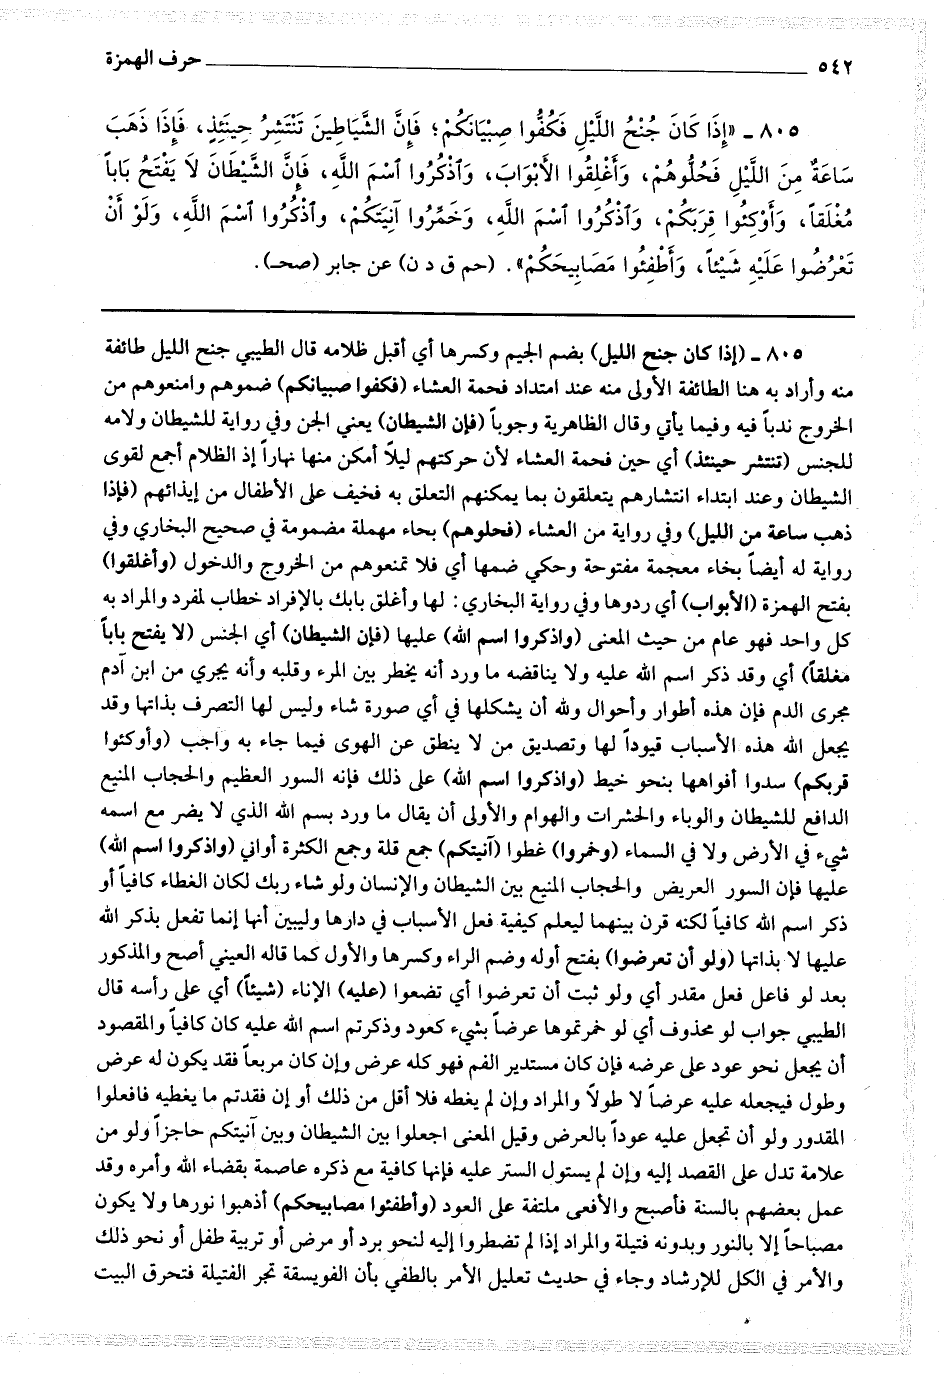 ٥٤٢ حرف الهمزة
٨٠٥ ـ «إِذَا كَانَ جُنْحُ اللَّيْلِ فَكُفُّوا صِبْيَانَكُمْ؛ فَإِنَّ الشَّيَاطِينَ تَنْتَشِرُ حِينَئِذٍ، فَإِذَا ذَهَبَ
سَاعَةٌ مِنَ اللَّيْلِ فَحُلُّوهُمْ، وَأَغْلِقُوا الأَبْوَابَ، وَٱذْكُرُوا ٱسْمَ اللَّهِ، فَإِنَّ الشَّيْطَانَ لَا يَفْتَحُ بَاباً
مُغْلَقاً، وَأَوْكِئُوا قِرَبَكُمْ، وَٱذْكُرُوا ٱسْمَ اللَّهِ، وَخَمِّرُوا آنِيَتَكُمْ، وٱذْكُرُوا ٱسْمَ اللَّهِ، وَلَوْ أَنْ
تَعْرُضُوا عَلَيْهِ شَيْئاً، وَأَطْفِئُوا مَصَابِيحَكُمْ». (حم ق د ن) عن جابر (صحـ).
٨٠٥ ـ (إذا كان جنح الليل) بضم الجيم وكسرها أي أقبل ظلامه قال الطيبي جنح الليل طائفة
منه وأراد به هنا الطائفة الأولى منه عند امتداد فحمة العشاء (فكفوا صبيانكم) ضموهم وامنعوهم من
الخروج ندباً فيه وفيما يأتي وقال الظاهرية وجوباً (فإن الشيطان) يعني الجن وفي رواية للشيطان ولامه
للجنس (تنتشر حينئذ) أي حين فحمة العشاء لأن حركتهم ليلاً أمكن منها نهاراً إذ الظلام أجمع لقوى
الشيطان وعند ابتداء انتشارهم يتعلقون بما يمكنهم التعلق به فخيف على الأطفال من إيذائهم (فإذا
ذهب ساعة من الليل) وفي رواية من العشاء (فحلوهم) بحاء مهملة مضمومة في صحيح البخاري وفي
رواية له أيضاً بخاء معجمة مفتوحة وحكي ضمها أي فلا تمنعوهم من الخروج والدخول (وأغلقوا)
بفتح الهمزة (الأبواب) أي ردوها وفي رواية البخاري: لها وأغلق بابك بالإفراد خطاب لمفرد والمراد به
كل واحد فهو عام من حيث المعنى (واذكروا اسم الله) عليها (فإن الشيطان) أي الجنس (لا يفتح باباً
مغلقاً) أي وقد ذكر اسم الله عليه ولا يناقضه ما ورد أنه يخطر بين المرء وقلبه وأنه يجري من ابن آدم
مجرى الدم فإن هذه أطوار وأحوال ولله أن يشكلها في أي صورة شاء وليس لها التصرف بذاتها وقد
يجعل الله هذه الأسباب قيوداً لها وتصديق من لا ينطق عن الهوى فيما جاء به واجب (وأوكئوا
قربكم) سدوا أفواهها بنحو خيط (واذكروا اسم الله) على ذلك فإنه السور العظيم والحجاب المنيع
الدافع للشيطان والوباء والحشرات والهوام والأولى أن يقال ما ورد بسم الله الذي لا يضر مع اسمه
شيء في الأرض ولا في السماء (وخمروا) غطوا (آنيتكم) جمع قلة وجمع الكثرة أواني (واذكروا اسم الله)
عليها فإن السور العريض والحجاب المنيع بين الشيطان والإنسان ولو شاء ربك لكان الغطاء كافياً أو
ذكر اسم الله كافياً لكنه قرن بينهما ليعلم كيفية فعل الأسباب في دارها وليبين أنها إنما تفعل بذكر الله
عليها لا بذاتها (ولو أن تعرضوا) بفتح أوله وضم الراء وكسرها والأول كما قاله العيني أصح والمذكور
بعد لو فاعل فعل مقدر أي ولو ثبت أن تعرضوا أي تضعوا (عليه) الإناء (شيئاً) أي على رأسه قال
الطيبي جواب لو محذوف أي لو خمرتموها عرضاً بشيء كعود وذكرتم اسم الله عليه كان كافياً والمقصود
أن يجعل نحو عود على عرضه فإن كان مستدير الفم فهو كله عرض وإن كان مربعاً فقد يكون له عرض
وطول فيجعله عليه عرضاً لا طولاً والمراد وإن لم يغطه فلا أقل من ذلك أو إن فقدتم ما يغطيه فافعلوا
المقدور ولو أن تجعل عليه عوداً بالعرض وقيل المعنى اجعلوا بين الشيطان وبين آنيتكم حاجزاً ولو من
علامة تدل على القصد إليه وإن لم يستول الستر عليه فإنها كافية مع ذكره عاصمة بقضاء الله وأمره وقد
عمل بعضهم بالسنة فأصبح والأفعى ملتفة على العود (وأطفئوا مصابيحكم) أذهبوا نورها ولا يكون
مصباحاً إلا بالنور وبدونه فتيلة والمراد إذا لم تضطروا إليه لنحو برد أو مرض أو تربية طفل أو نحو ذلك
والأمر في الكل للإرشاد وجاء في حديث تعليل الأمر بالطفي بأن الفويسقة تجر الفتيلة فتحرق البيت